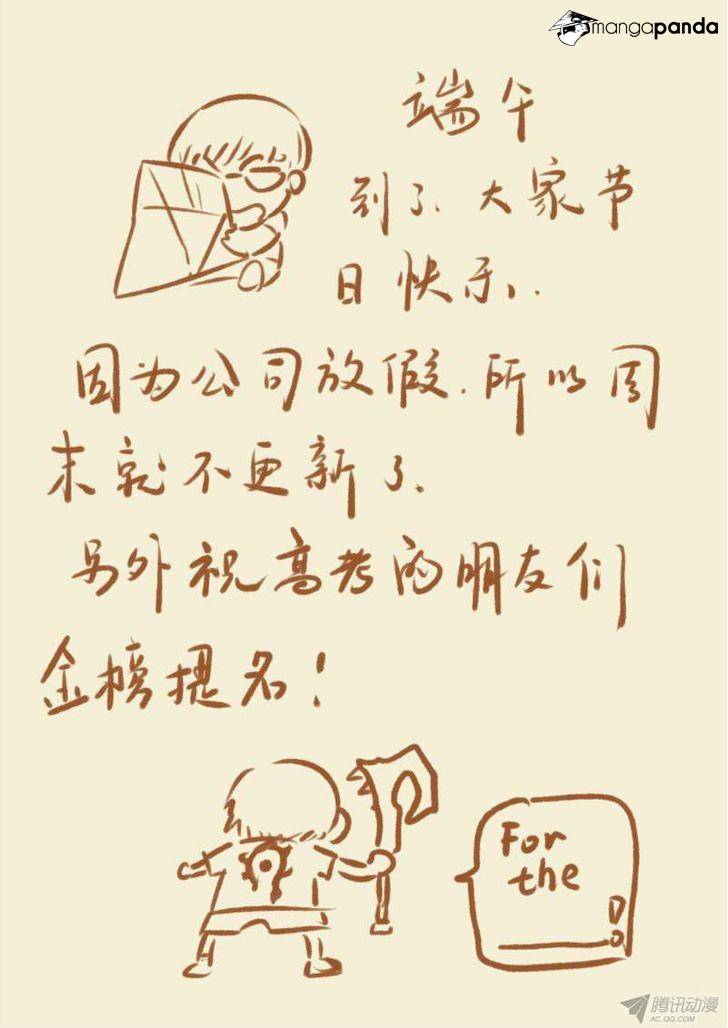 mangapanda
端午
到了、大家节
日快乐、.
因为公司放假.所以周
末就不更新了、
另外祝高考的朋友们
金榜提名!
For
the
____!?
腾讯动漫
AC.QQ.COM